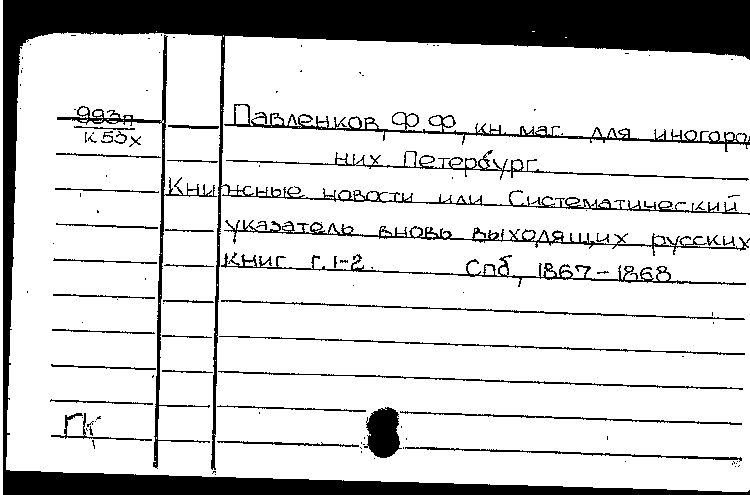 993п
К53х
Павленков, Ф.Ф., кн. маг. для иногород
них. Петербург.
Книжные новости или Систематический
указатель вновь выходящих русских
книг. г. 1-2. Спб., 1867-1868
ГК